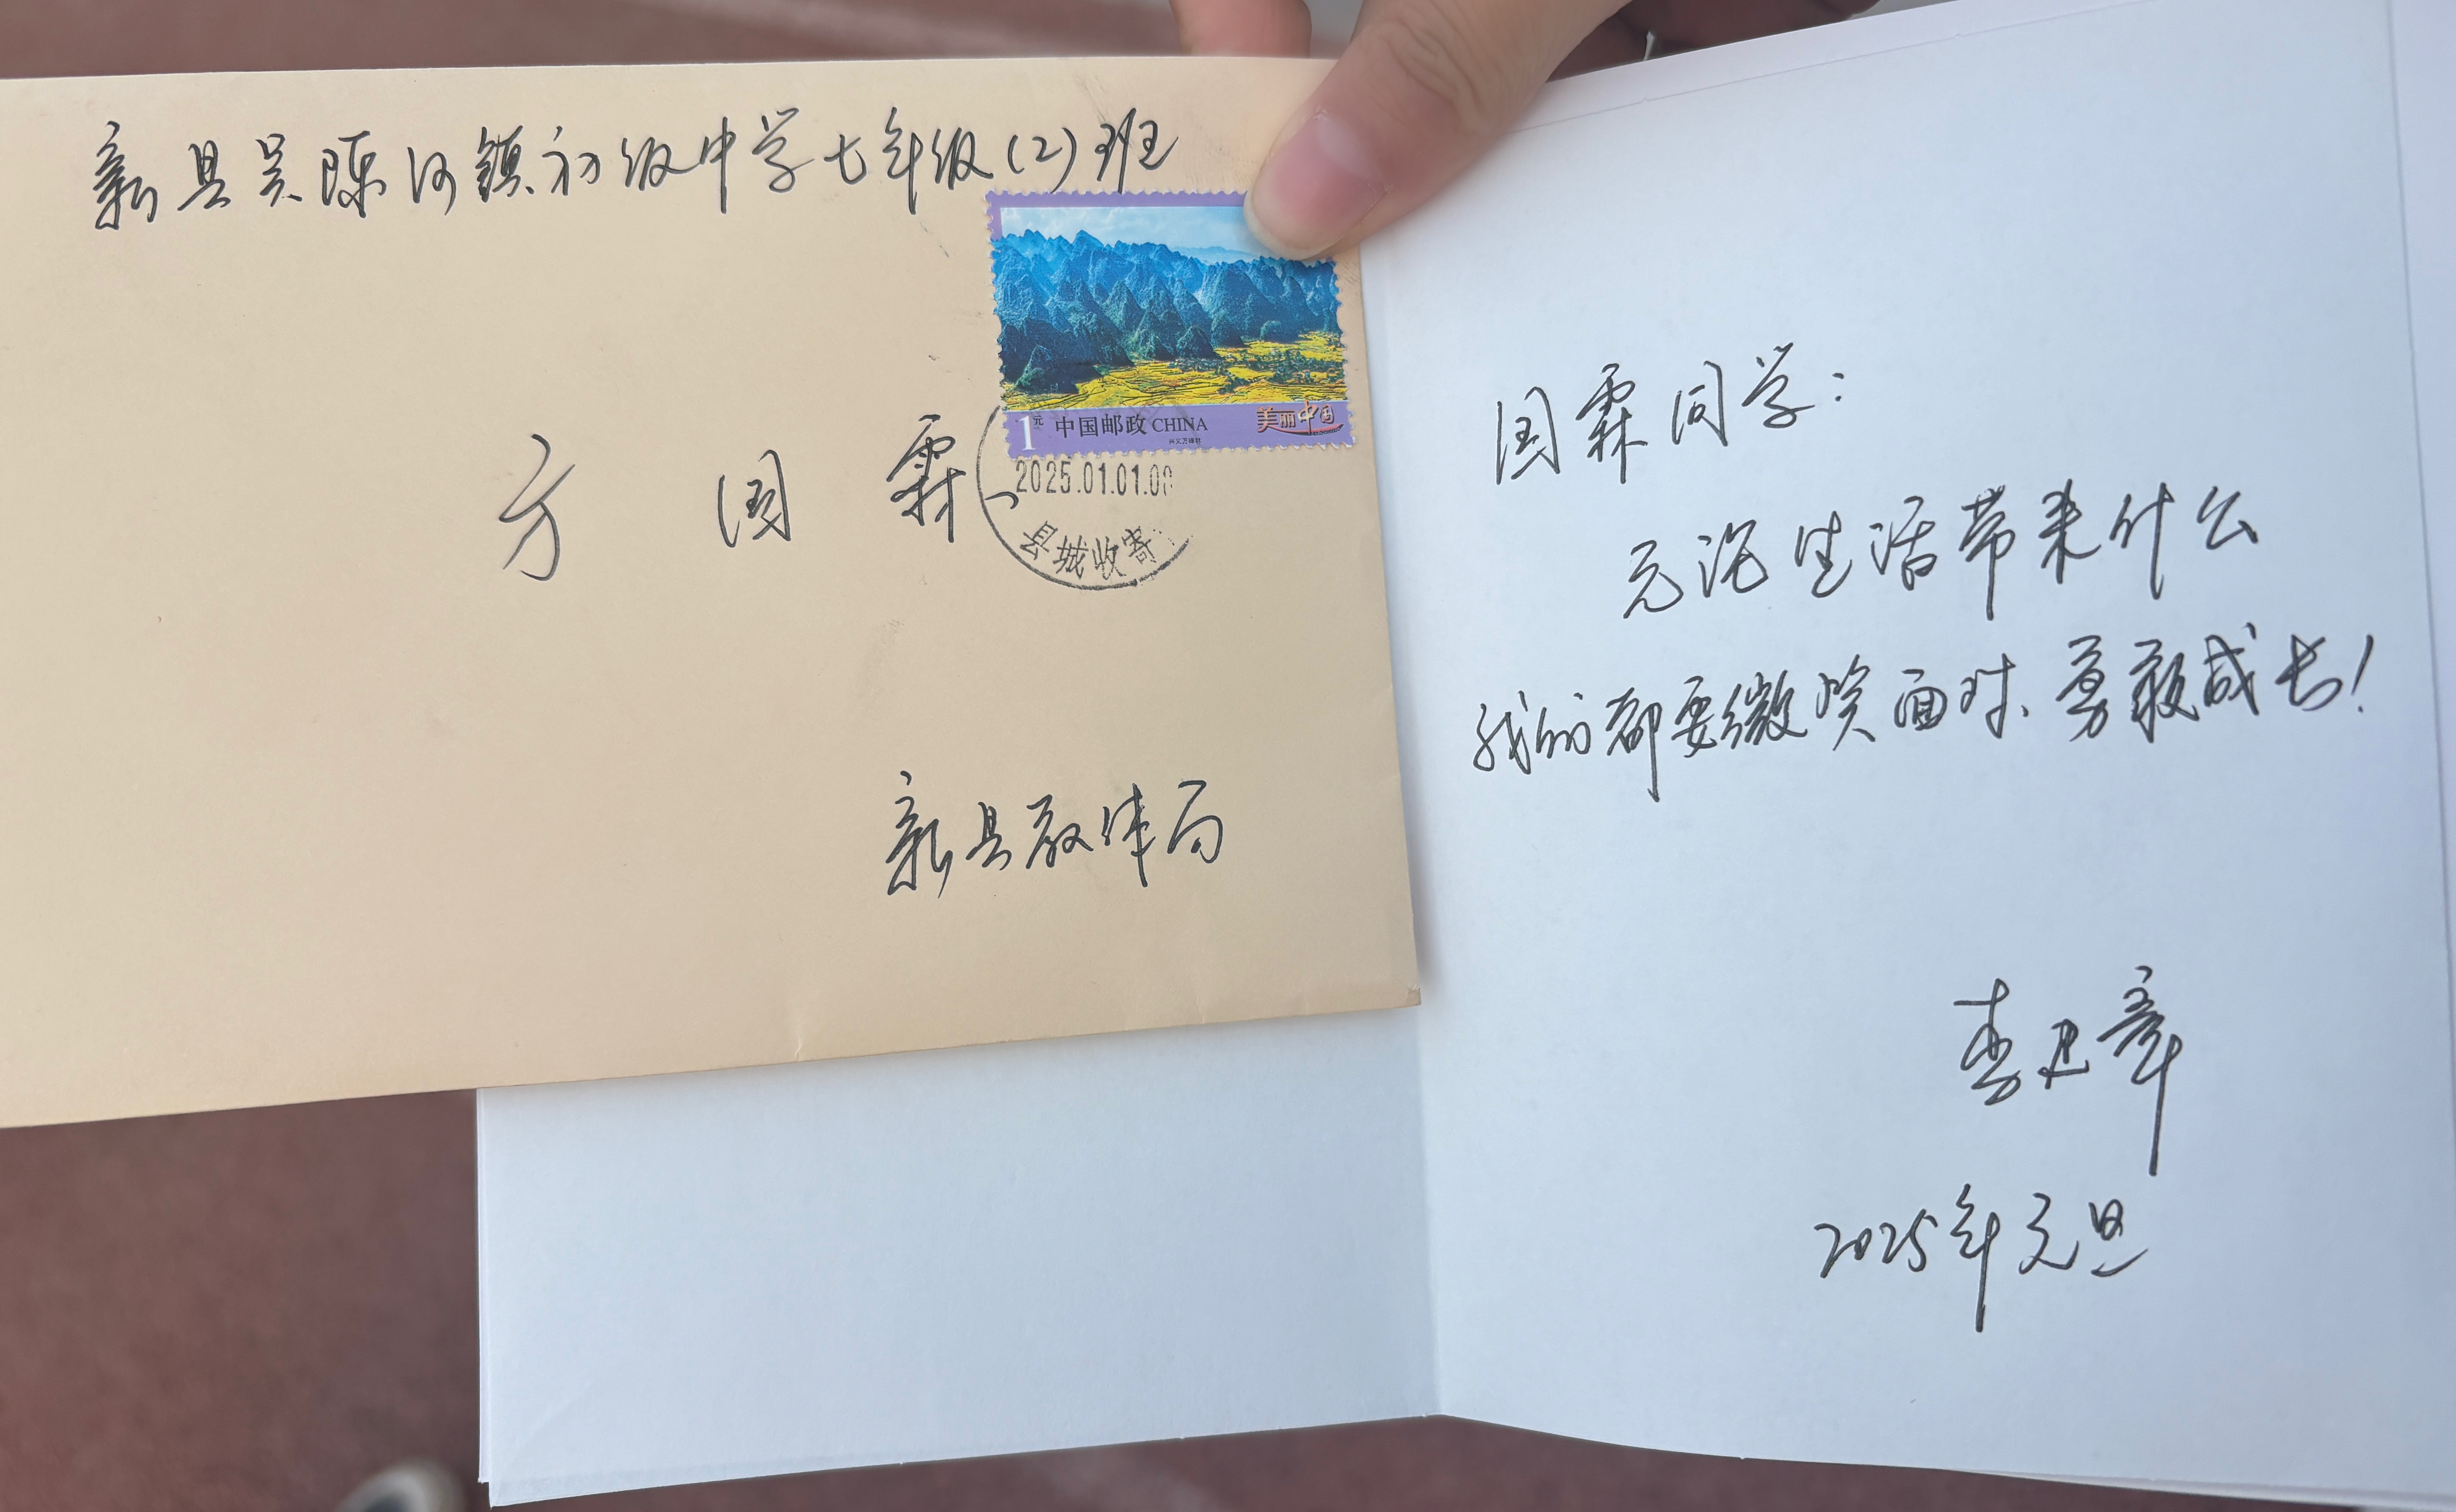 新县吴陈河镇初级中学七年级(2)班
1元 中国邮政 CHINA
美丽中国
方国霖
2025.01.01.0
县城收寄
新县教体局
国霖同学:
无论生活带来什么
我们都要微笑面对、勇敢成长!
2025年元旦